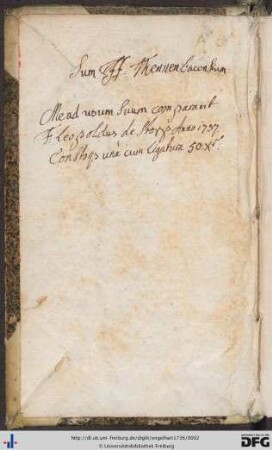 Sum FF. Thennenbacensium
Me ad usum suum comparavit
F. Leopoldus de Anno 1737
Constitq; unà cum ligatura 50. xr.
http://dl.ub.uni-freiburg.de/diglit/engelhart1736/0002
© Universitätsbibliothek Freiburg
DFG